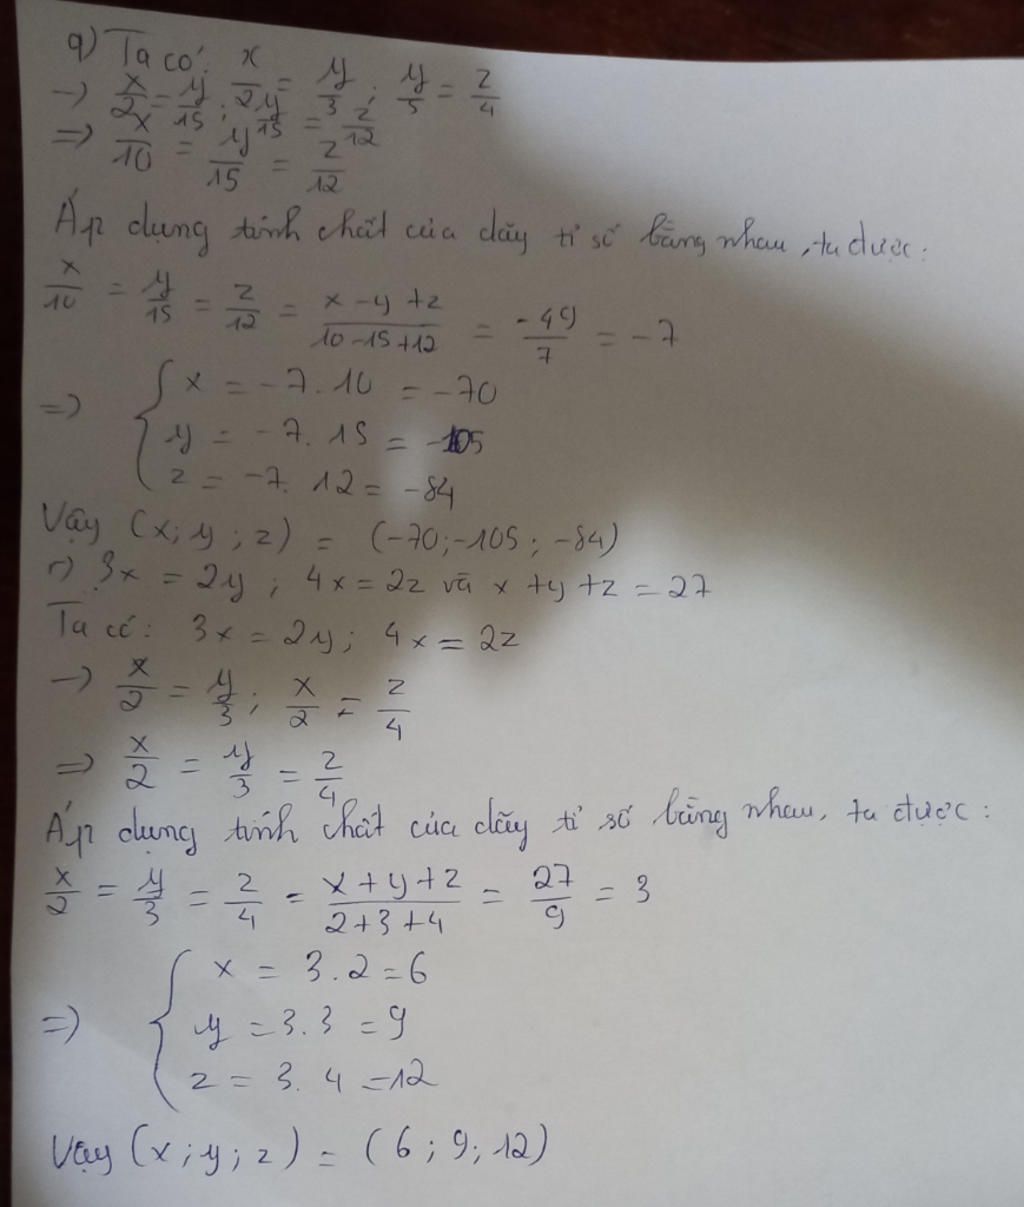 q) Ta có: x/2 = y/3 ; y/5 = z/4
→ x/2 = y/15 ; y/15 = z/12
=> x/10 = y/15 = z/12
Áp dụng tính chất của dãy tỉ số bằng nhau, ta được:
x/10 = y/15 = z/12 = (x - y + z)/(10 - 15 + 12) = -49/7 = -7
=> { x = -7. 10 = -70
y = -7. 15 = -105
z = -7. 12 = -84
Vậy (x; y; z) = (-70; -105; -84)
r) 3x = 2y ; 4x = 2z và x + y + z = 27
Ta có: 3x = 2y; 4x = 2z
→ x/2 = y/3 ; x/2 = z/4
=> x/2 = y/3 = z/4
Áp dụng tính chất của dãy tỉ số bằng nhau, ta được:
x/2 = y/3 = z/4 = (x + y + z)/(2 + 3 + 4) = 27/9 = 3
=> { x = 3.2 = 6
y = 3.3 = 9
z = 3. 4 = 12
Vậy (x; y; z) = (6; 9; 12)